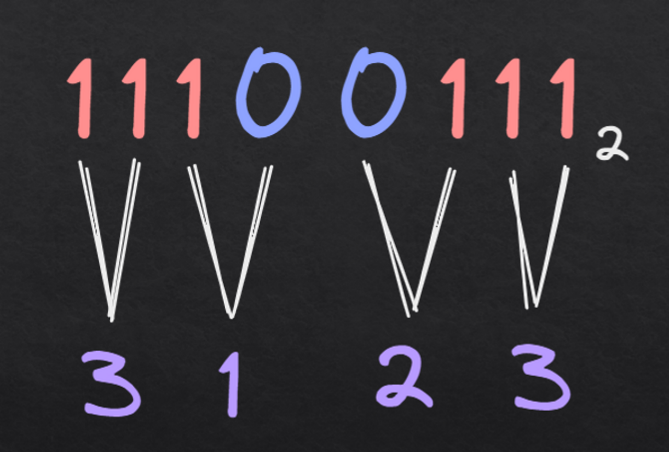 11100111₂
3 1 2 3